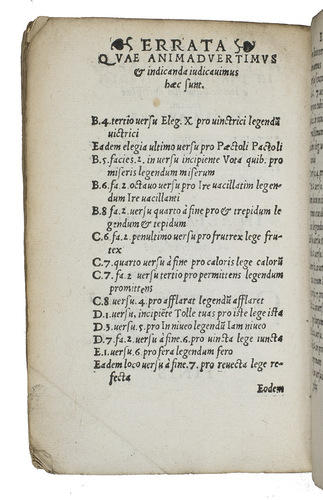 ERRATA
QVAE ANIMADVERTIMVS
& indicanda iudicauimus
hæc sunt.
B.4. tertio versu Eleg. X. pro vinctrici legendū
victrici
Eadem elegia vltimo versu pro Pæctoli Pactoli
B.5. facies.2. in versu incipiente Vota quib. pro
miseris legendum miserum
B.6. fa.2. octauo versu pro Ire vacillatim legen-
dum Ire vacillanti
B.8 fa.2. versu quarto à fine pro & trepidum le
gendum & tepidum
C.6. fa.2. penultimo versu pro frutrex lege fru-
tex
C.7. quarto versu à fine pro caloris lege calorū
C.7. fa.2 versu tertio pro permittens legendum
promittens
C.8 versu.4. pro afflarat legendū afflaret
D.1. versu. incipiēte Tolle tuas pro iste lege icta
D.5. versu.5. pro In niueo legendū Iam niueo
D.7. fa.2. versu à fine.6. pro vincta lege iuncta
E.1. versu.6. pro fera legendum fero
Eadem loco versu à fine.7. pro reuecta lege re-
fecta
Eodem